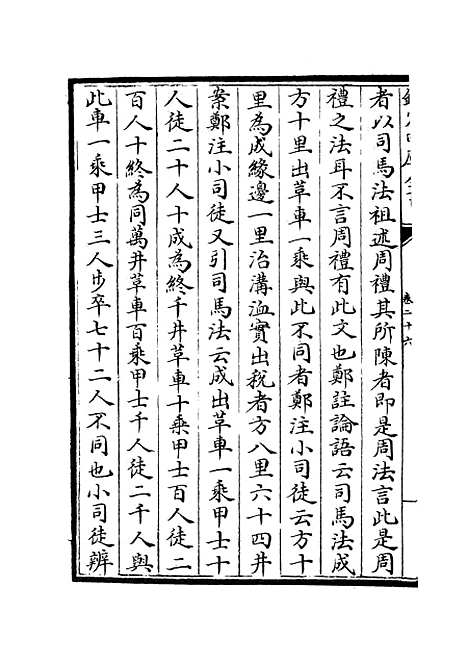 卷二十六
者以司馬法祖述周禮其所陳者即是周法言此是周
禮之法耳不言周禮有此文也鄭註論語云司馬法成
方十里出革車一乘與此不同者鄭注小司徒云方十
里為成緣邊一里治溝洫實出稅者方八里六十四井
案鄭注小司徒又引司馬法云成出革車一乘甲士十
人徒二十人十成為終千井革車十乘甲士百人徒二
百人十終為同萬井革車百乘甲士千人徒二千人與
此車一乘甲士三人步卒七十二人不同也小司徒辨